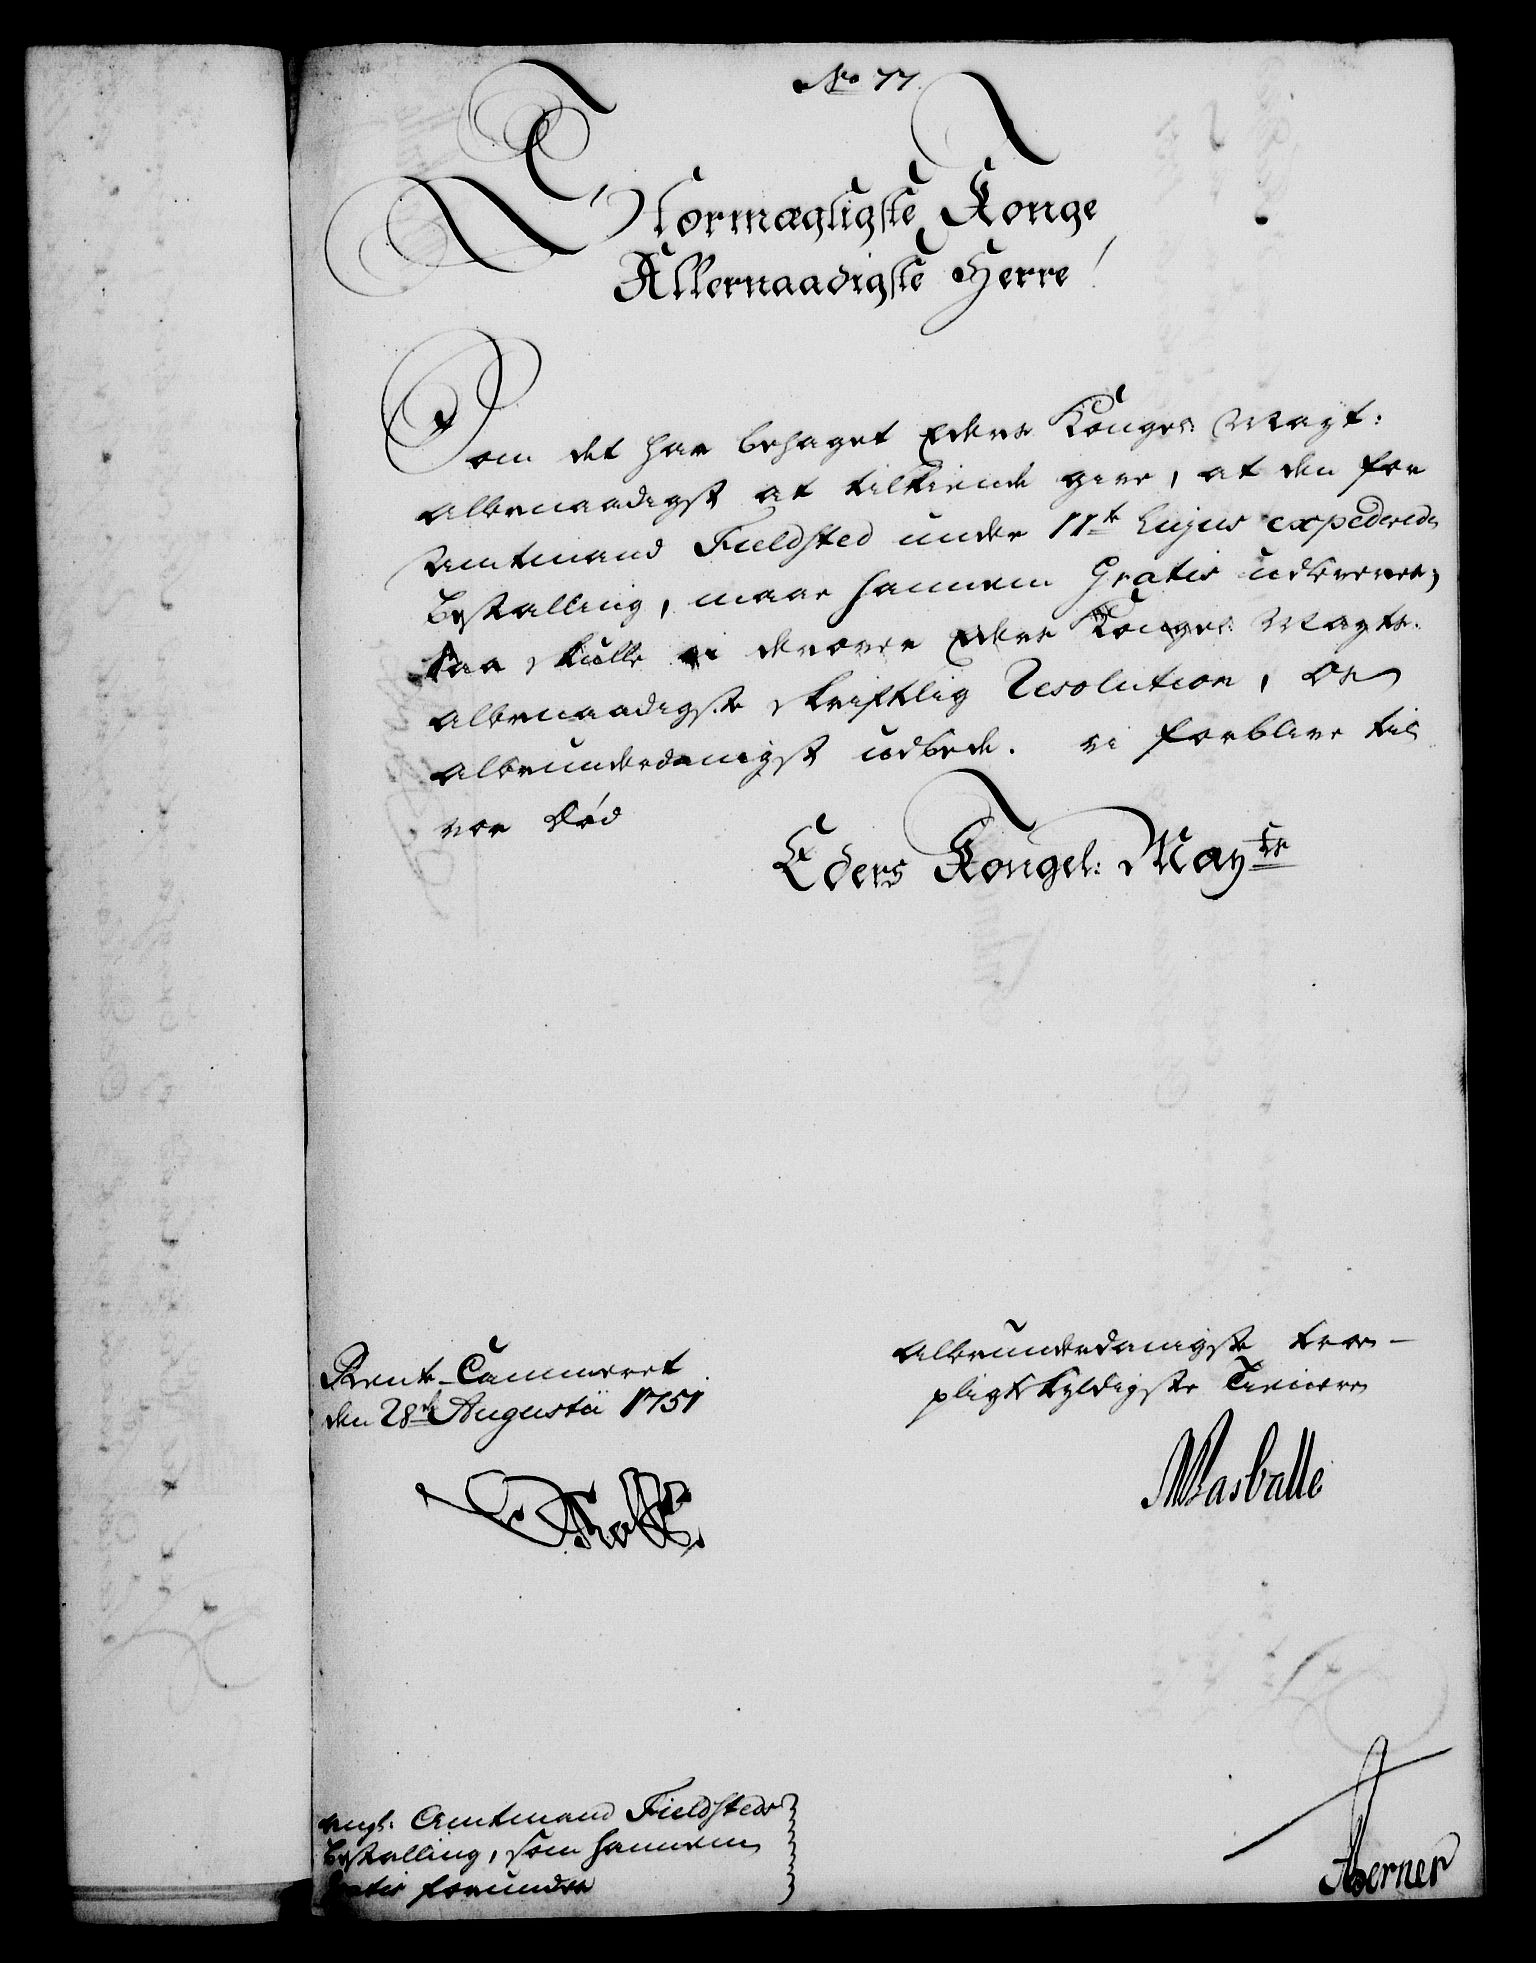 No 77.
Stormægtigste Konge
Allernaadigste Herre!
Som det har behaget Eders Kongel: Mayt:
allernaadigst at tilkiende give, at den for
Amtmand Fieldsted under 11te hujus expederede
Bestalling, maae hannem Gratis udleveres,
saa skulle vi derover Eders Kongel: Mayts.
allernaadigste skriftlig Resolution, os
allerunderdanigst udbede. vi forblive til
vor Død
Eders Kongel: Mayts
Rente-Cammeret
den 28de Augustii 1751
allerunderdanigste troe-
pligtskyldigste Tienere
Masballe
Holst.
angl: Amtmand Fieldsteds
Bestalling, som hannem
Gratis forundes
Berner